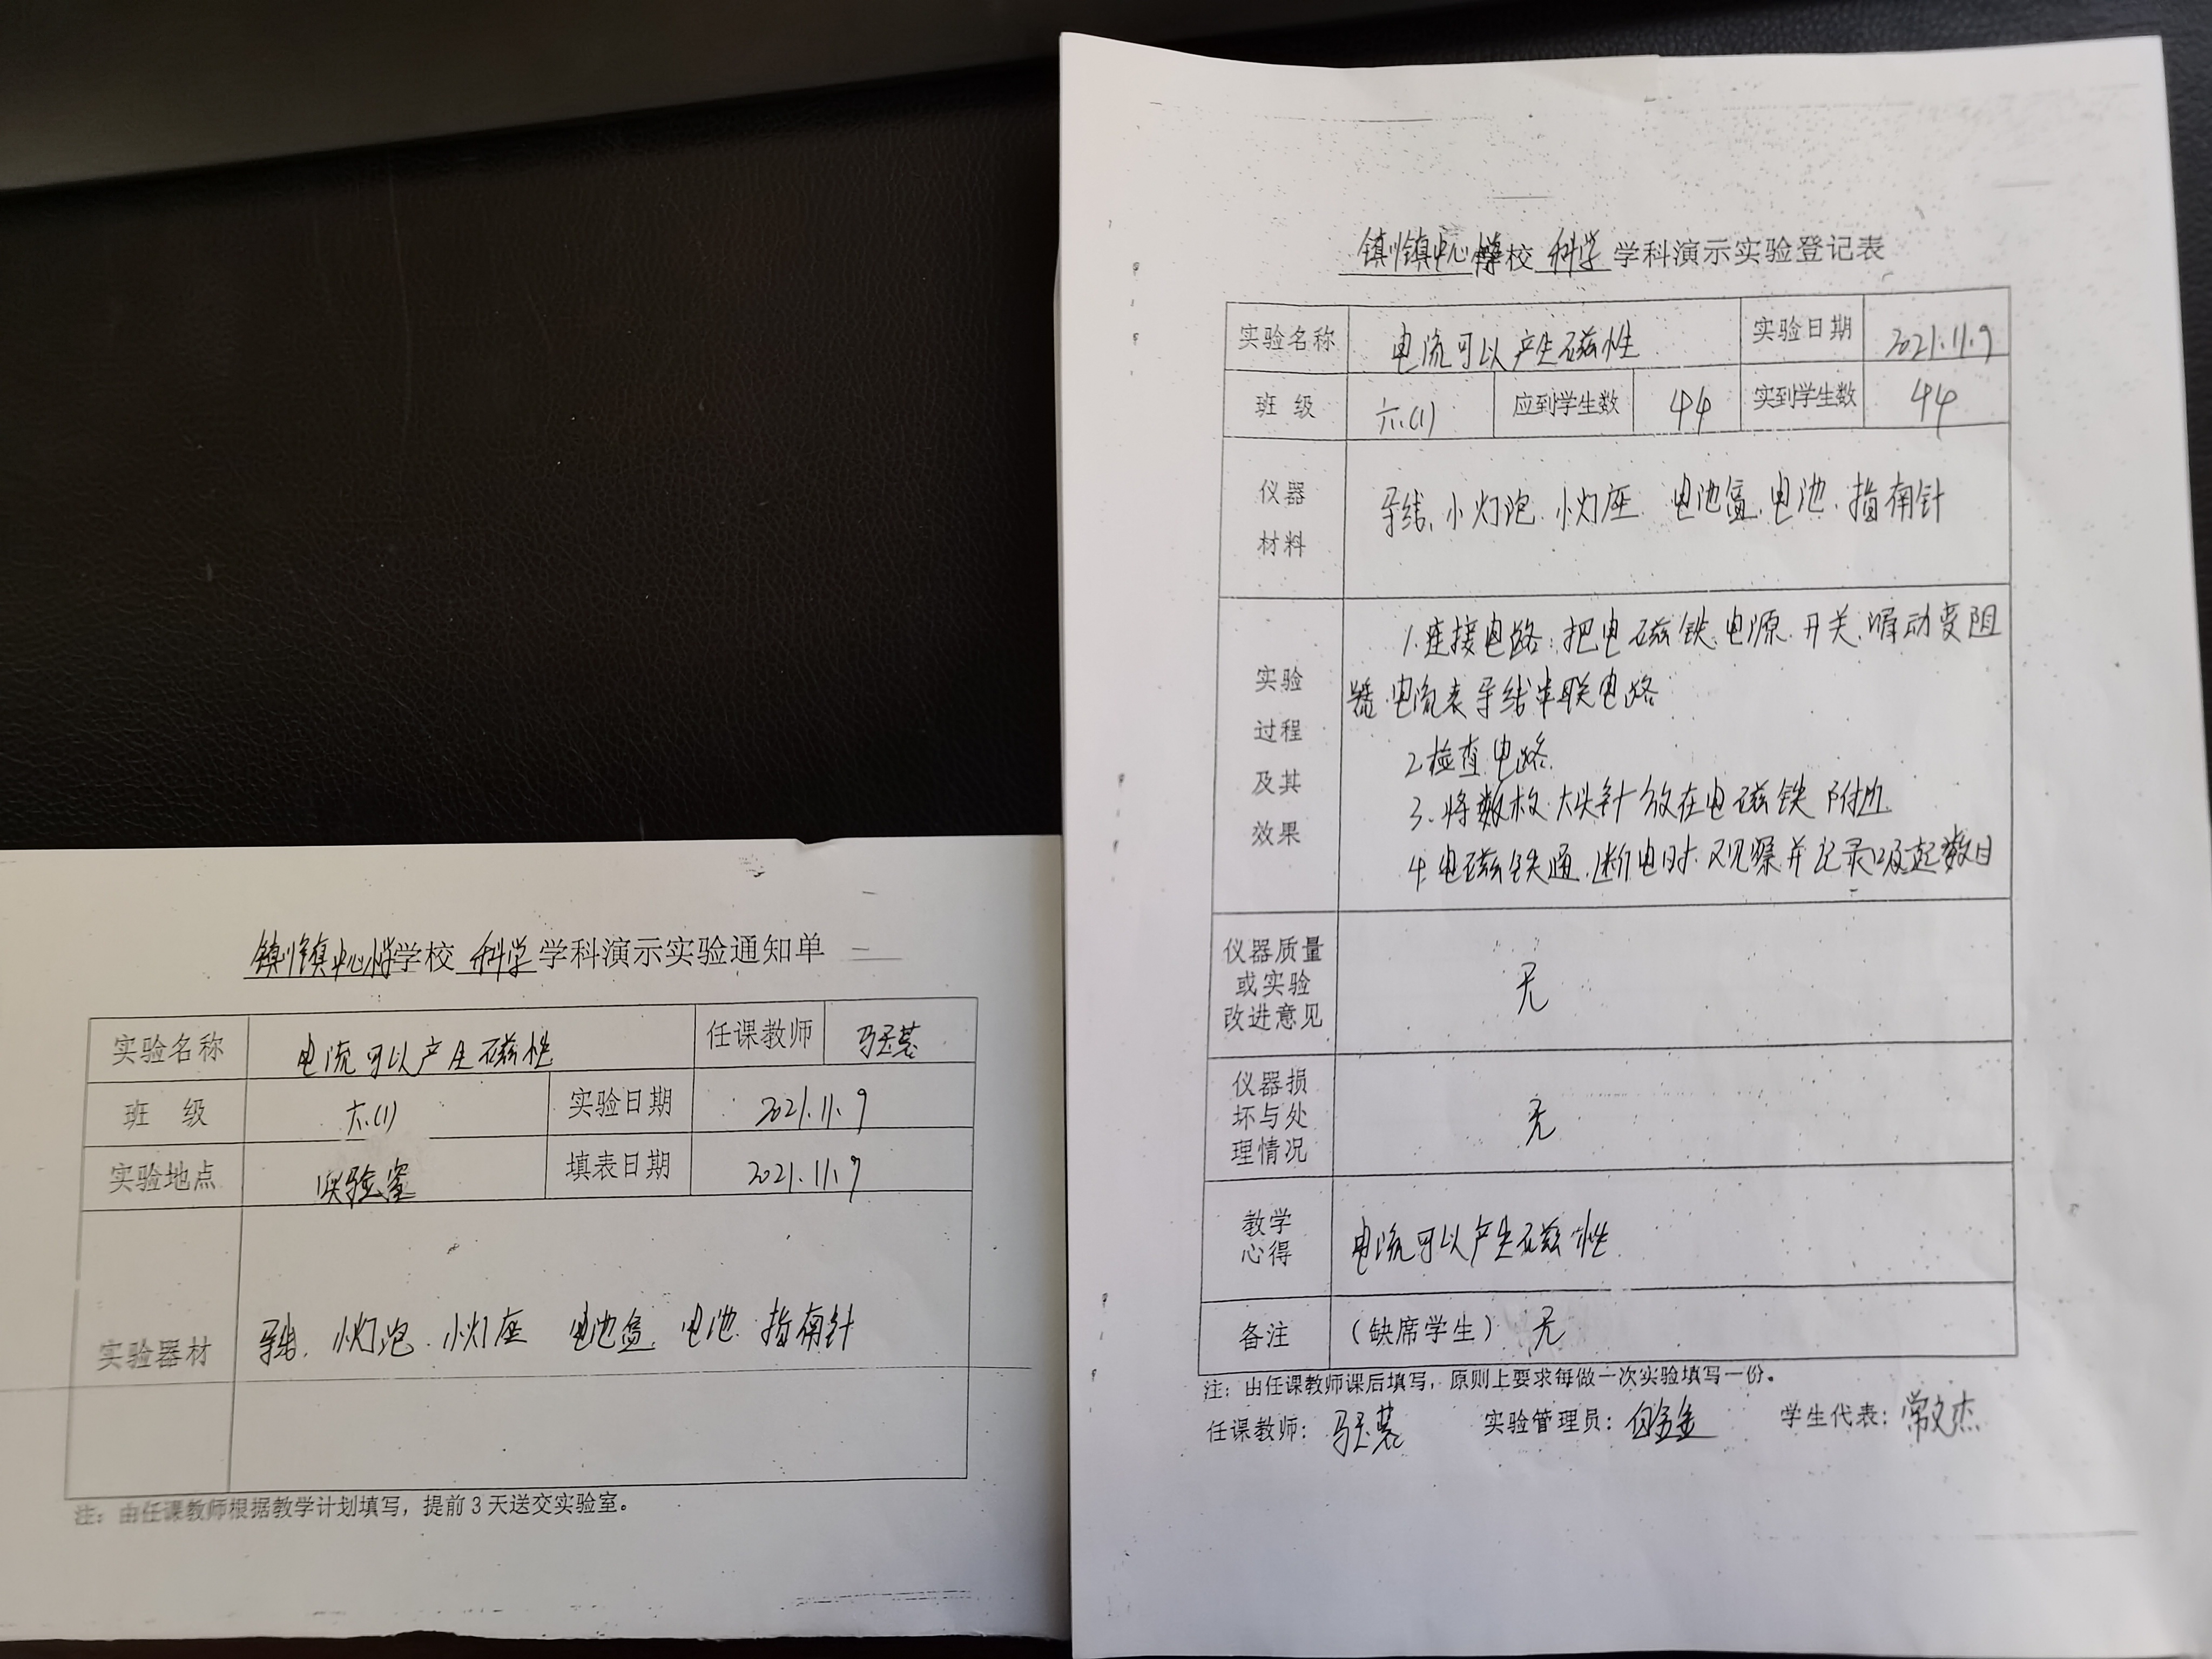 镇川镇中心小学学校 科学 学科演示实验通知单
实验名称 电流可以产生磁性 任课教师
班 级 六.(1) 实验日期 2021.11.9
实验地点 实验室 填表日期 2021.11.9
实验器材 导线、小灯泡、小灯座 电池盒、电池、指南针
注：由任课教师根据教学计划填写，提前3天送交实验室。
镇川镇中心 校 科学 学科演示实验登记表
实验名称 电流可以产生磁性 实验日期 2021.11.9
班 级 六.(1) 应到学生数 44 实到学生数 44
仪器
材料
导线、小灯泡、小灯座 电池盒、电池、指南针
实验
过程
及其
效果
1.连接电路：把电磁铁、电源、开关、滑动变阻
器、电流表导线串联电路
2.检查电路
3、将数枚大头针放在电磁铁附近
4.电磁铁通、断电时、观察并记录吸起数目
仪器质量
或实验
改进意见
无
仪器损
坏与处
理情况
无
教学
心得
电流可以产生磁性
备注 （缺席学生） 无
注：由任课教师课后填写，原则上要求每做一次实验填写一份。
任课教师： 实验管理员： 学生代表：常文杰